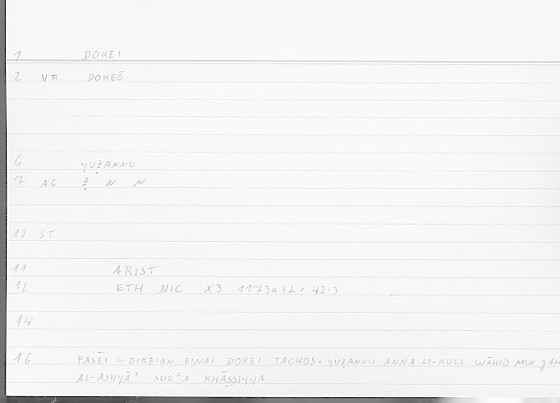 1 DOKEI
2 VA DOKEŌ
6 YUẒANNU
7 AG Ẓ N N
10 ST
11 ARIST
12 ETH NIC X3
14
16 PASĒI — OIKEION EINAI DOKEI TACHOS. YUẒANNU ANNA LI-KULL WĀḤID MIN
AL-ASHYĀʾ SURʿA KHĀṢṢIYYA